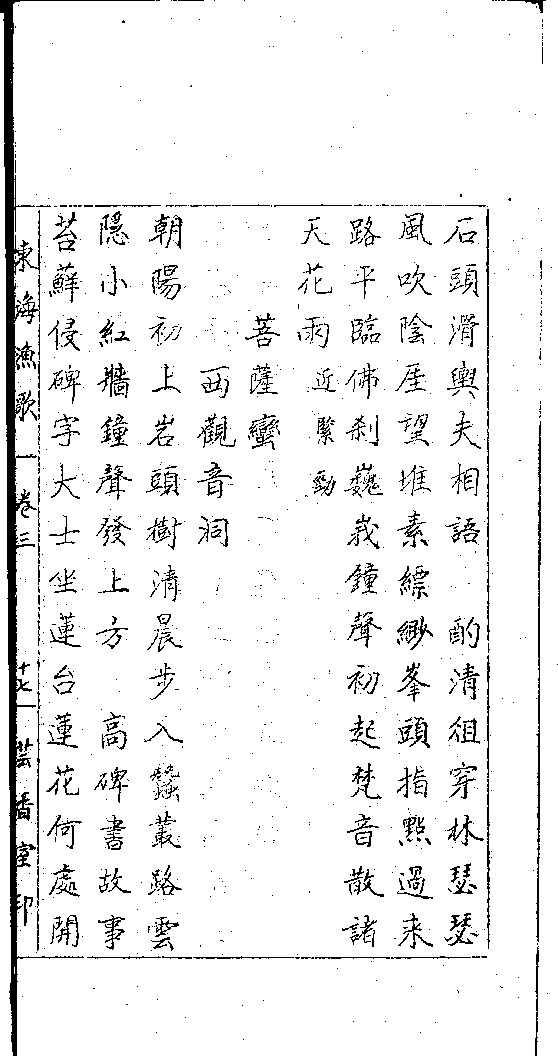 石頭滑輿夫相語　酌清徂穿林瑟瑟
風吹陰厓望堆素縹緲峯頭指點過來
路平臨佛刹巍峩鐘聲初起梵音散諸
天花雨近緊勁
菩薩蠻
西觀音洞
朝陽初上岩頭樹清晨步入蠶叢路雲
隱小紅牆鐘聲發上方　高碑書故事
苔蘚侵碑字大士坐蓮台蓮花何處開
東海漁歌　卷三　十七　芸香室印